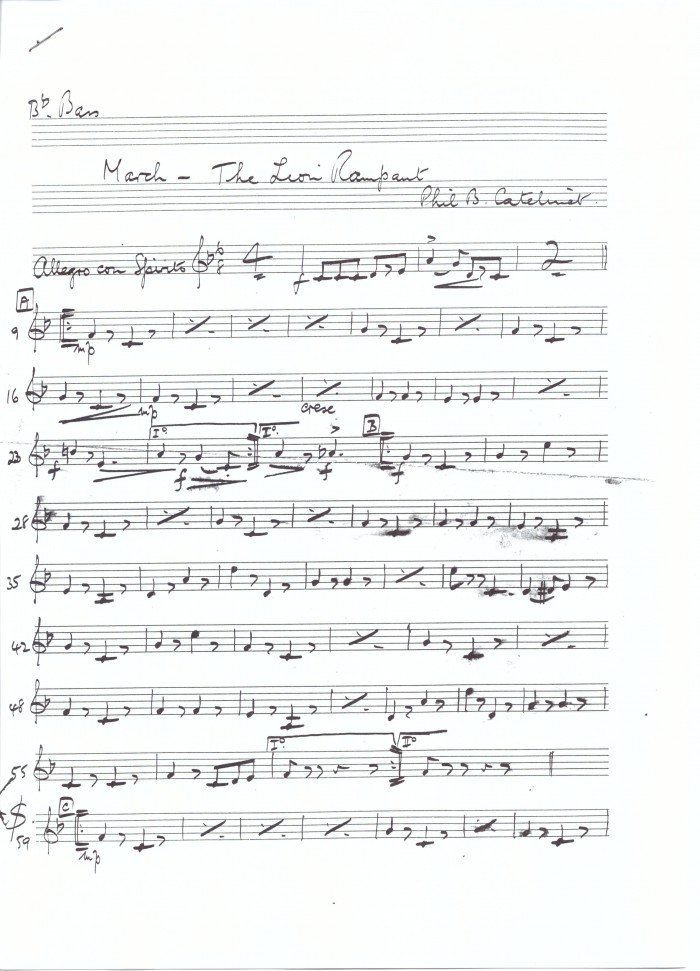 Bb. Bass
March – The Lion Rampant
Phil B. Catelinet.
Allegro con Spirito 4 f 2
A
9 mp
16 mp cresc
23 f Iº. f Iº. f B f
28
35
42
48
55 Iº. IIº.
C
59 mp